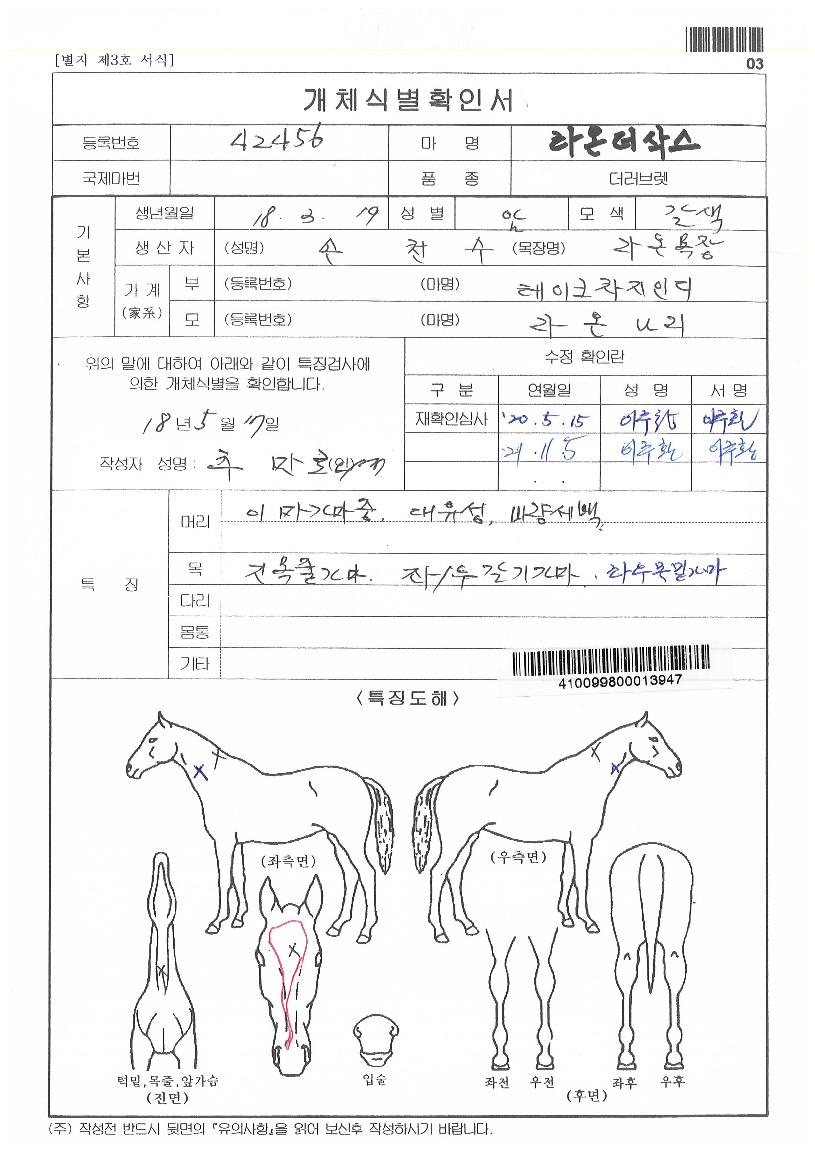 [별지 제3호 서식]
03
개체식별확인서
등록번호 42456 마 명 라온더샥스
국제마번 품 종 더러브렛
기본사항
생년월일 18. 3. 19 성 별 암 모 색 갈색
생 산 자 (성명) 손 천 수 (목장명) 라온목장
가 계 (家系) 부 (등록번호) (마명) 테이크차지인디
모 (등록번호) (마명) 라 온
위의 말에 대하여 아래와 같이 특징검사에
의한 개체식별을 확인합니다.
18년 5월 17일
작성자 성명 : 추 (인)
수정 확인란
구 분 연월일 성 명 서 명
재확인심사 '20. 5. 15 이주환 이주환
21. 11. 5 이주환 이주환
. .
특 징
머리 이마가마중, 대유성, 비량세백
목 전목줄가마. 좌/우갈기가마. 좌우목밑가마
다리
몸통
기타
410099800013947
<특징도해>
(좌측면)
(우측면)
턱밑,목줄,앞가슴
(진면)
입술
좌전 우전
(후면)
좌후 우후
(주) 작성전 반드시 뒷면의 『유의사항』을 읽어 보신후 작성하시기 바랍니다.